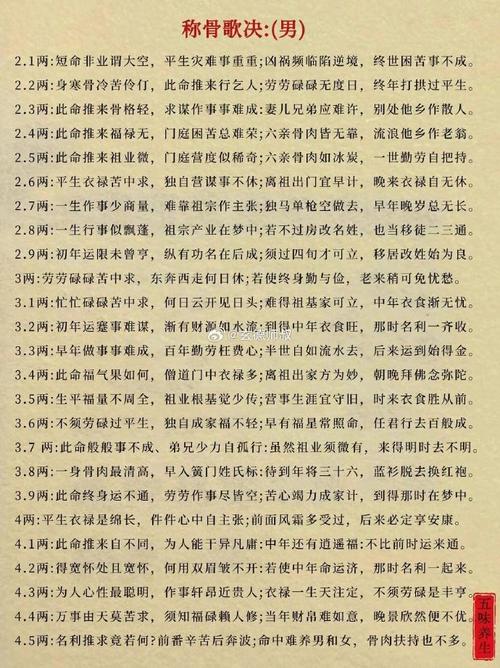 称骨歌决:(男)
2.1两:短命非业谓大空，平生灾难事重重;凶祸频临陷逆境，终世困苦事不成。
2.2两:身寒骨冷苦伶仃，此命推来行乞人;劳劳碌碌无度日，终年打拱过平生。
2.3两:此命推来骨格轻，求谋作事事难成;妻儿兄弟应难许，别处他乡作散人。
2.4两:此命推来福禄无，门庭困苦总难荣;六亲骨肉皆无靠，流浪他乡作老翁。
2.5两:此命推来祖业微，门庭营度似稀奇;六亲骨肉如冰炭，一世勤劳自把持。
2.6两:平生衣禄苦中求，独自营谋事不休;离祖出门宜早计，晚来衣禄自无休。
2.7两:一生作事少商量，难靠祖宗作主张;独马单枪空做去，早年晚岁总无长。
2.8两:一生行事似飘蓬，祖宗产业在梦中;若不过房改名姓，也当移徒二三通。
2.9两:初年运限未曾亨，纵有功名在后成;须过四旬才可立，移居改姓始为良。
3两:劳劳碌碌苦中求，东奔西走何日休;若使终身勤与俭，老来稍可免忧愁。
3.1两:忙忙碌碌苦中求，何日云开见日头;难得祖基家可立，中年衣食渐无忧。
3.2两:初年运蹇事难谋，渐有财源如水流;到得中年衣食旺，那时名利一齐收。
3.3两:早年做事事难成，百年勤劳枉费心;半世自如流水去，后来运到始得金。
3.4两:此命福气果如何，僧道门中衣禄多;离祖出家方为妙，朝晚拜佛念弥陀。
3.5两:生平福量不周全，祖业根基觉少传;营事生涯宜守旧，时来衣食胜从前。
3.6两:不须劳碌过平生，独自成家福不轻;早有福星常照命，任君行去百般成。
3.7 两:此命般般事不成、弟兄少力自孤行;虽然祖业须微有，来得明时去不明。
3.8两:一身骨肉最清高，早入簧门姓氏标;待到年将三十六，蓝衫脱去换红袍。
3.9两:此命终身运不通，劳劳作事尽皆空;苦心竭力成家计，到得那时在梦中。
4两:平生衣禄是绵长，件件心中自主张;前面风霜多受过，后来必定享安康。
4.1两:此命推来自不同，为人能干异凡庸;中年还有逍遥福:不比前时运来通。
4.2两:得宽怀处且宽怀，何用双眉皱不开;若使中年命运济，那时名利一起来。
4.3两:为人心性最聪明，作事轩昂近贵人;衣禄一生天注定，不须劳碌是丰亨。
4.4两:万事由天莫苦求，须知福碌赖人修;当年财帛难如意，晚景欣然便不优。
4.5两:名利推求竟若何?前番辛苦后奔波;命中难养男和女，骨肉扶持也不多。
五味养生